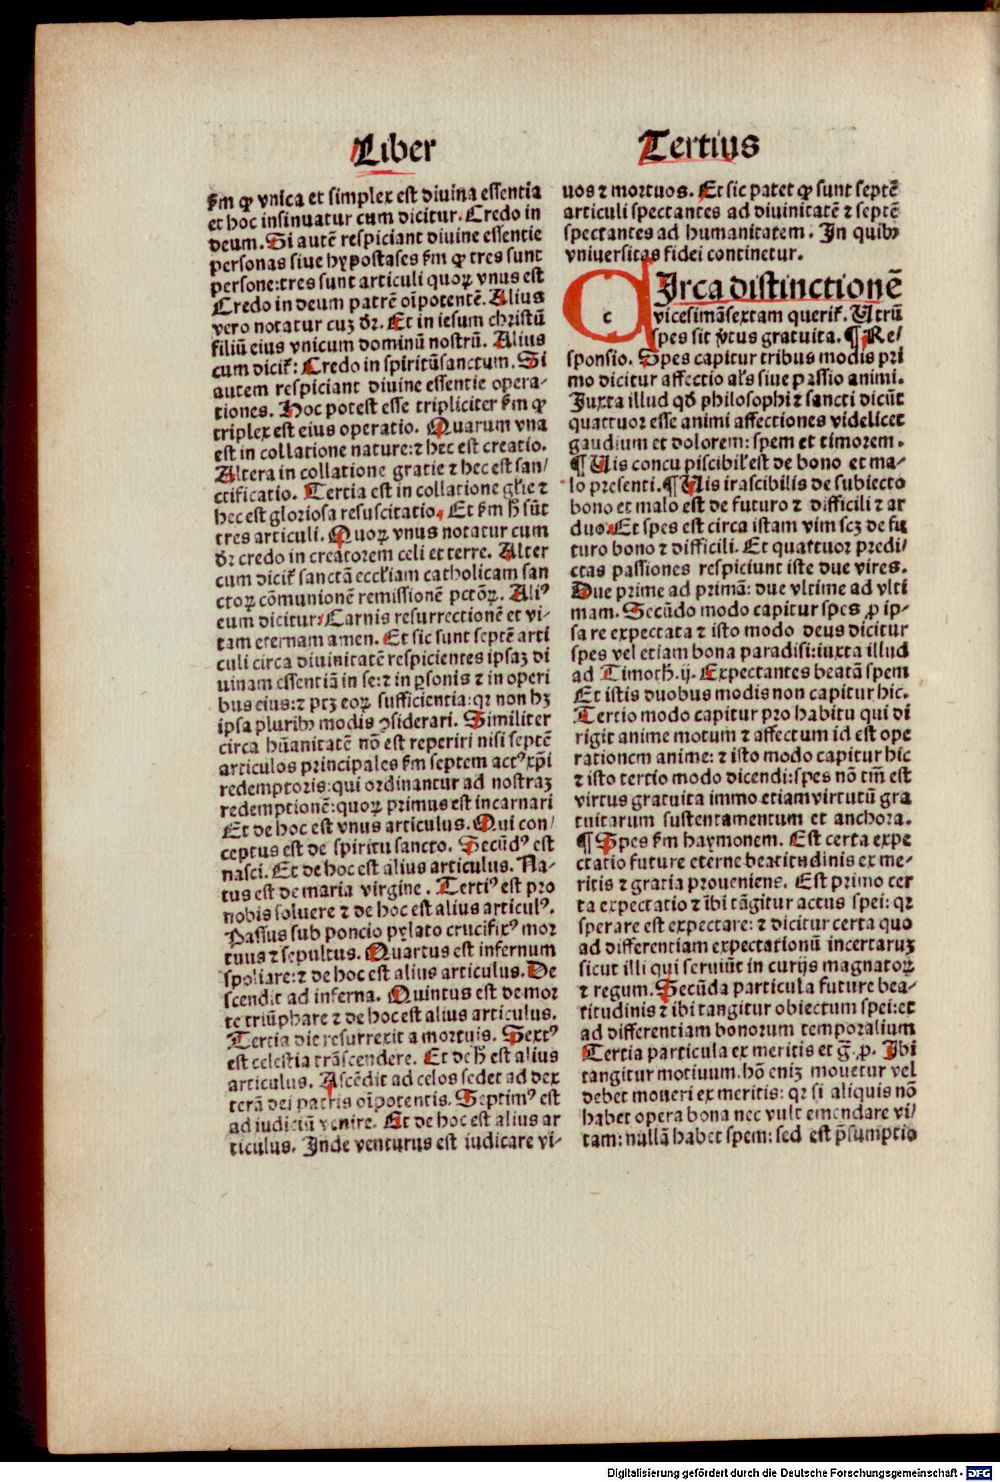 Liber Tertius
ẜm ꝙ vnica et simplex est diuina essentia
et hoc insinuatur cum dicitur. Credo in
deum. Si autẽ respiciant diuine essentie
personas siue hypostases ẜm ꝙ tres sunt
persone: tres sunt articuli quoꝝ vnus est
Credo in deum patrẽ oĩpotentẽ. Alius
vero notatur cuꝫ dr̃. Et in iesum christũ
filiũ eius vnicum dominũ nostrũ. Alius
cum dicit̃: Credo in spiritũsanctum. Si
autem respiciant diuine essentie opera-
tiones. Hoc potest esse tripliciter ẜm ꝙ
triplex est eius operatio. Quarum vna
est in collatione nature: ⁊ hec est creatio.
Altera in collatione gratie ⁊ hec est san/
ctificatio. Tertia est in collatione gl̃ie ⁊
hec est gloriosa resuscitatio. Et ẜm h̃ sũt
tres articuli. Quoꝝ vnus notatur cum
dr̃ credo in creatorem celi et terre. Alter
cum dicit̃ sanctã eccl̃iam catholicam san
ctoꝝ cõmunionẽ remissionẽ pctõꝝ. Aliꝰ
cum dicitur: Carnis resurrectionẽ et vi-
tam eternam amen. Et sic sunt septẽ arti
culi circa diuinitatẽ respicientes ipsaꝫ di
uinam essentiã in se: ⁊ in ꝑsonis ⁊ in operi
bus eius: ⁊ ptꝫ eoꝝ sufficientia: qꝛ non hꝫ
ipsa pluribꝰ modis ꝯsiderari. Similiter
circa hũanitatẽ nõ est reperiri nisi septẽ
articulos principales ẜm septem actꝰ xp̃i
redemptoris: qui ordinantur ad nostraꝫ
redemptionẽ: quoꝝ primus est incarnari
Et de hoc est vnus articulus. Qui con/
ceptus est de spiritu sancto. Secũdꝰ est
nasci. Et de hoc est alius articulus. Na-
tus est de maria virgine. Tertiꝰ est pro
nobis soluere ⁊ de hoc est alius articulꝰ.
Passus sub poncio pylato crucifixꝰ mor
tuus ⁊ sepultus. Quartus est infernum
spoliare: ⁊ de hoc est alius articulus. De
scendit ad inferna. Quintus est de mor
te triũphare ⁊ de hoc est alius articulus.
Tertia die resurrexit a mortuis. Sextꝰ
est celestia trãscendere. Et de h̃ est alius
articulus. Ascẽdit ad celos sedet ad dex
terã dei patris oĩpotentis. Septimꝰ est
ad iudiciũ venire. Et de hoc est alius ar
ticulus. Inde venturus est iudicare vi-
uos ⁊ mortuos. Et sic patet ꝙ sunt septẽ
articuli spectantes ad diuinitatẽ ⁊ septẽ
spectantes ad humanitatem. In quibꝰ
vniuersitas fidei continetur.
CIrca distinctionẽ
vicesimãsextam querit̃. Utrũ
spes sit v̓tus gratuita. ¶ Re/
sponsio. Spes capitur tribus modis pri
mo dicitur affectio al̃s siue passio animi.
Juxta illud qd̃ philosophi ⁊ sancti dicũt
quattuor esse animi affectiones videlicet
gaudium et dolorem: spem et timorem.
¶ Uis concupiscibil̃ est de bono et ma-
lo presenti. ¶ Uis irascibilis de subiecto
bono et malo est de futuro ⁊ difficili ⁊ ar
duo. Et spes est circa istam vim scꝫ de fu
turo bono ⁊ difficili. Et quattuor predi/
ctas passiones respiciunt iste due vires.
Due prime ad primã: due vltime ad vlti
mam. Secũdo modo capitur spes ꝓ ip-
sa re expectata ⁊ isto modo deus dicitur
spes vel etiam bona paradisi: iuxta illud
ad Timoth. ij. Expectantes beatã spem
Et istis duobus modis non capitur hic.
Tertio modo capitur pro habitu qui di
rigit anime motum ⁊ affectum id est ope
rationem anime: ⁊ isto modo capitur hic
⁊ isto tertio modo dicendi: spes nõ tm̃ est
virtus gratuita immo etiam virtutũ gra
tuitarum sustentamentum et anchora.
¶ Spes ẜm haymonem. Est certa expe
ctatio future eterne beatitudinis ex me-
ritis ⁊ gratia proueniens. Est primo cer
ta expectatio ⁊ ibi tãgitur actus spei: qꝛ
sperare est expectare: ⁊ dicitur certa quo
ad differentiam expectationũ incertaruꝫ
sicut illi qui seruiũt in curijs magnatoꝝ
⁊ regum. Secũda particula future bea-
titudinis ⁊ ibi tangitur obiectum spei: et
ad differentiam bonorum temporalium
Tertia particula ex meritis et g̃. ꝓ. Ibi
tangitur motiuum. hõ eniꝫ mouetur vel
debet moueri ex meritis: qꝛ si aliquis nõ
habet opera bona nec vult emendare vi/
tam: nullã habet spem: sed est p̃sumptio
c
Digitalisierung gefördert durch die Deutsche Forschungsgemeinschaft - DFG